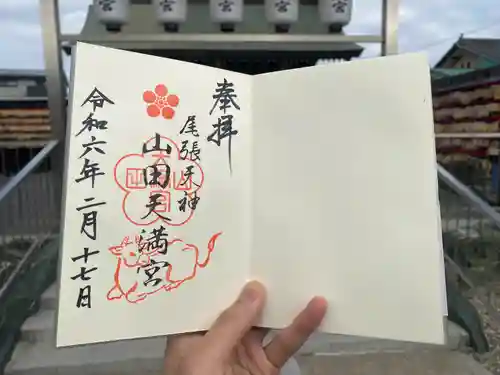 宮
宮
宮
宮
宮
奉拝
尾張天神
山田天満宮
令和六年二月十七日